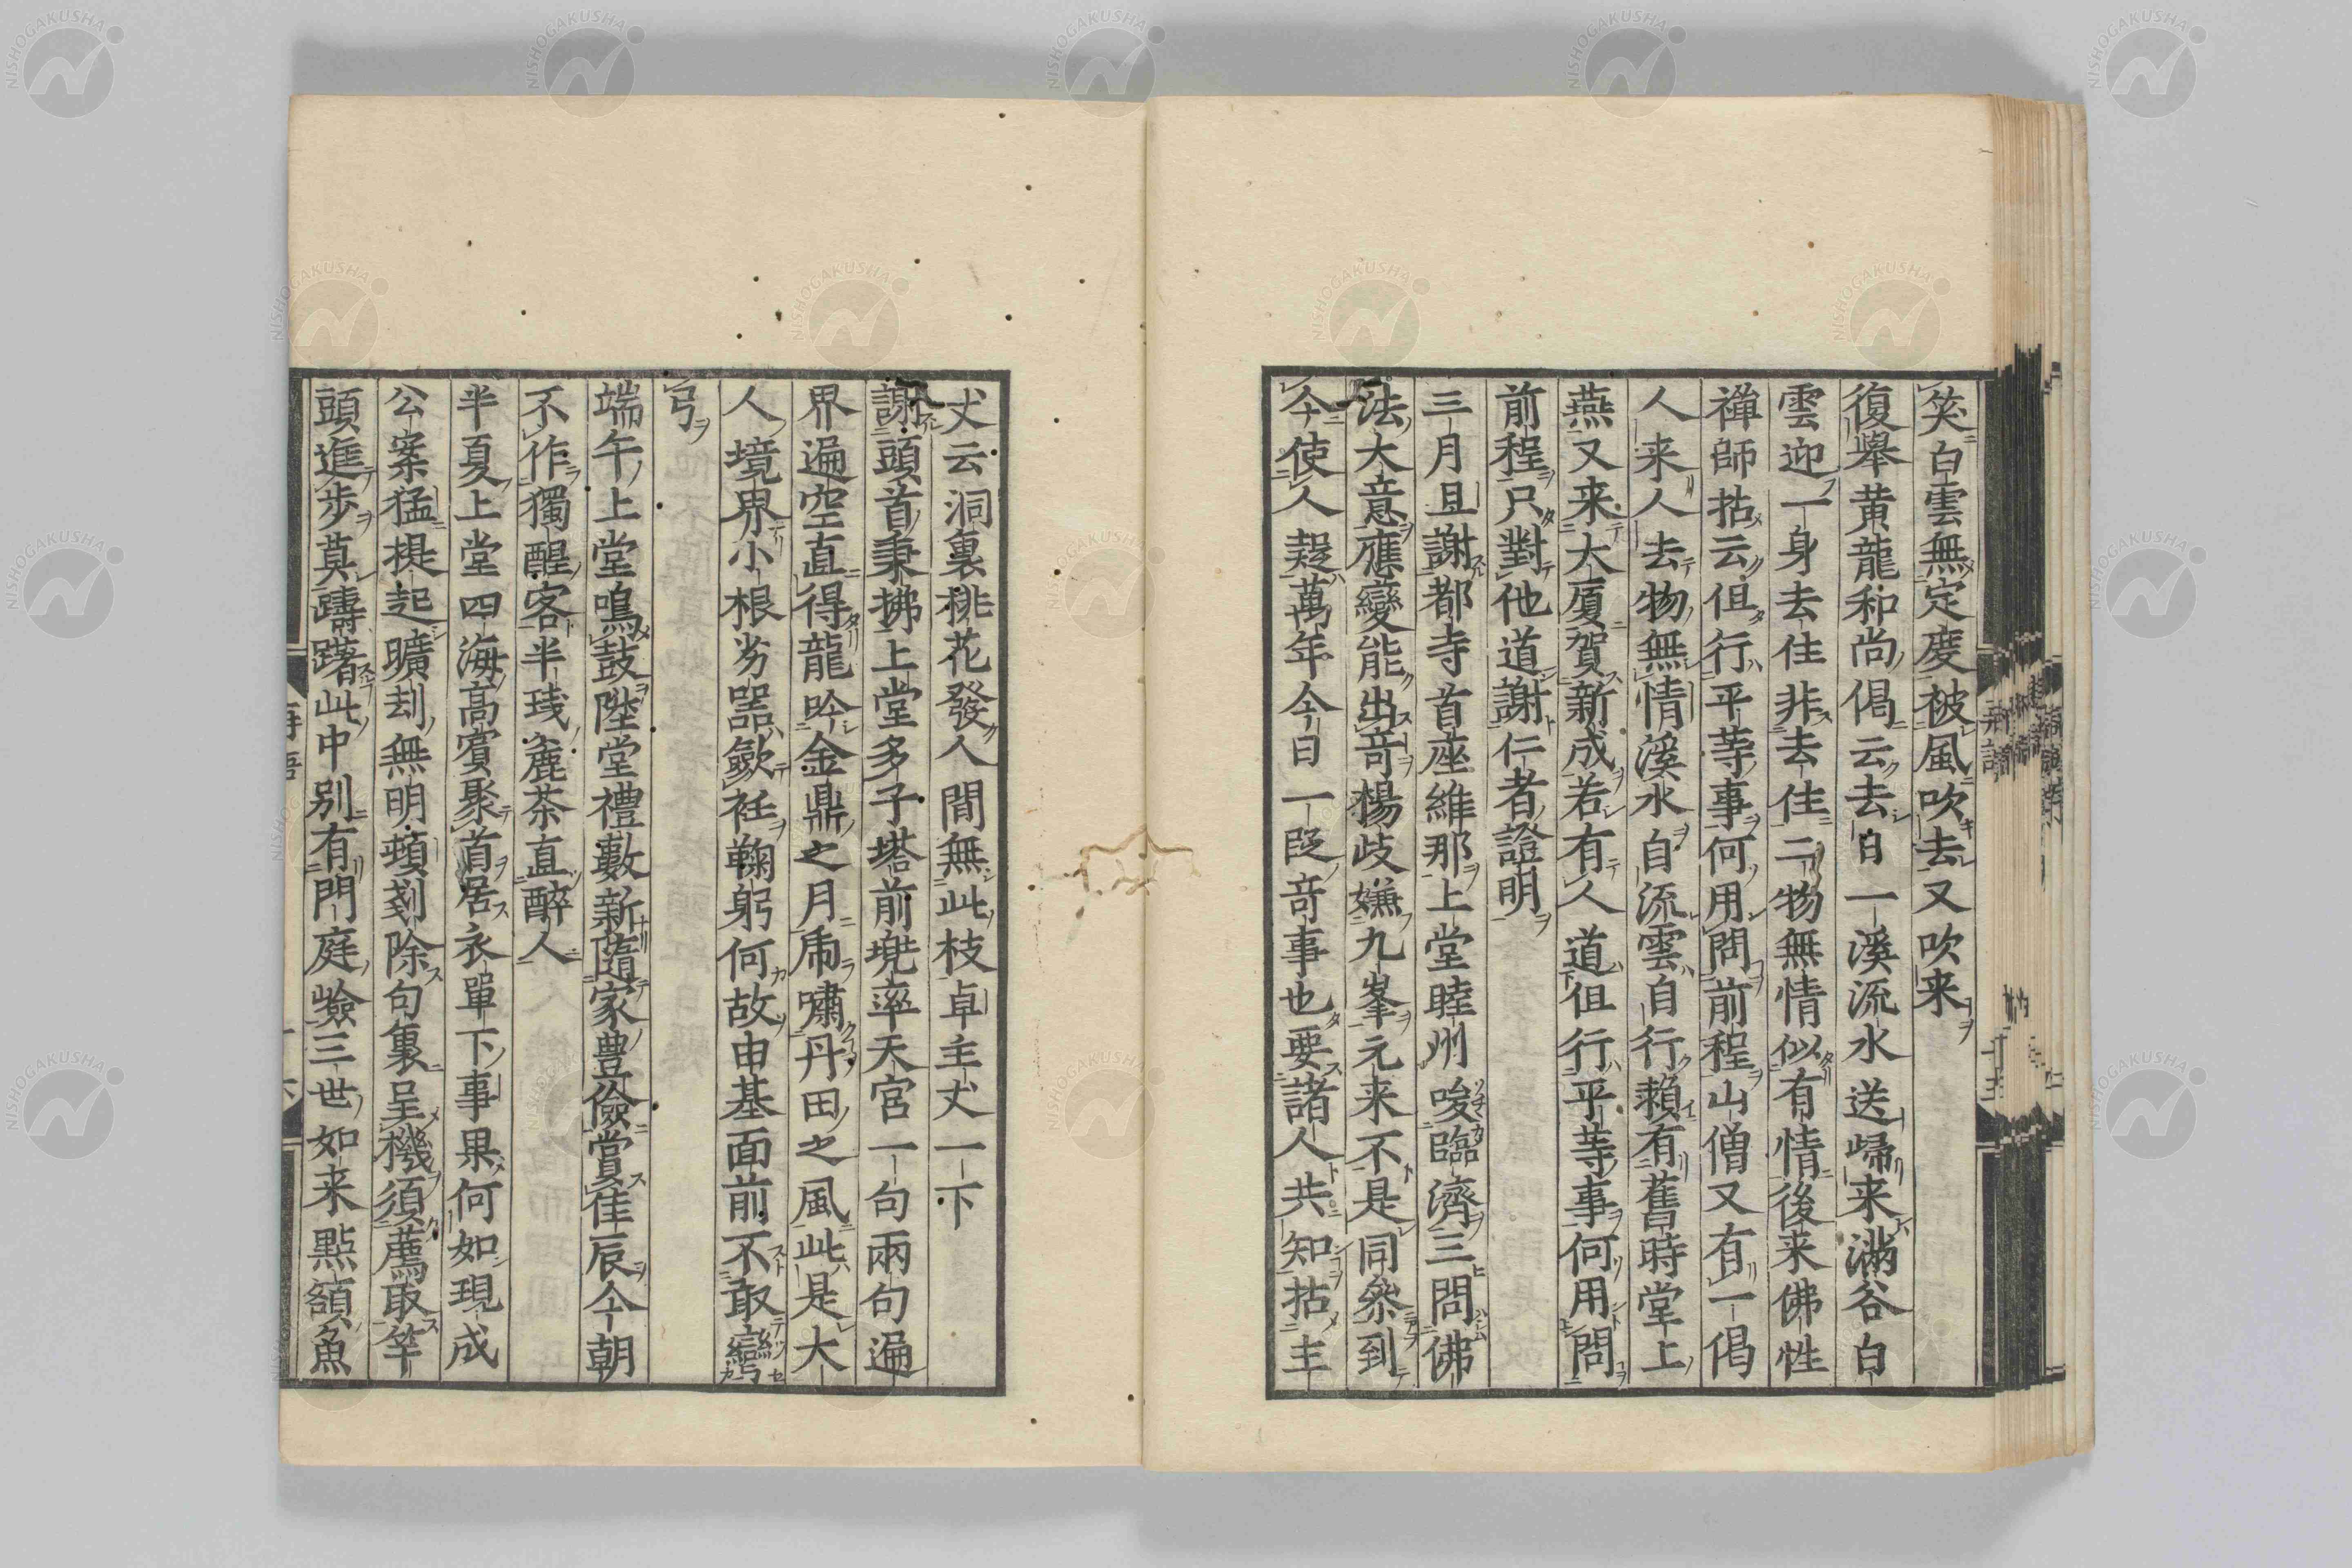 笑白雲無定度被風吹去又吹来
復擧黄龍和尚偈云去白一溪流水送歸来滿谷白
雲迎一身去住非去住二物無情似有情後来佛性
禪師拈云但行平等事何用問前程山僧又有一偈
人来人去物無情溪水自流雲自行頼有舊時堂上
燕又来大厦賀新成若有人道但行平等事何用問
前程只對他道謝仁者證明
三月旦謝都寺首座維那上堂睦州唆臨濟三問佛
法大意應變能出竒楊歧嫌九峯元来不是同叅到
今使人疑萬年今日一段竒事也要諸人共知拈主
丈云洞裏桃花發人間無此枝卓主丈一下
謝頭首秉拂上堂多子塔前兠率天宮一句兩句遍
界遍空直得龍吟金鼎之月虎嘯丹田之風此是大
人境界小根劣器歛衽鞠躬何故由基面前不敢彎
弓
端午上堂鳴鼓陞堂禮數新隨家豊儉賞佳辰今朝
不作獨醒客半琖麁茶直醉人
半夏上堂四海高賓聚首居衣單下事果何如現成
公案猛提起曠刼無明頓剗除句裏呈機須薦取竿
頭進歩莫躊躇此中別有門庭嶮三世如来點額魚